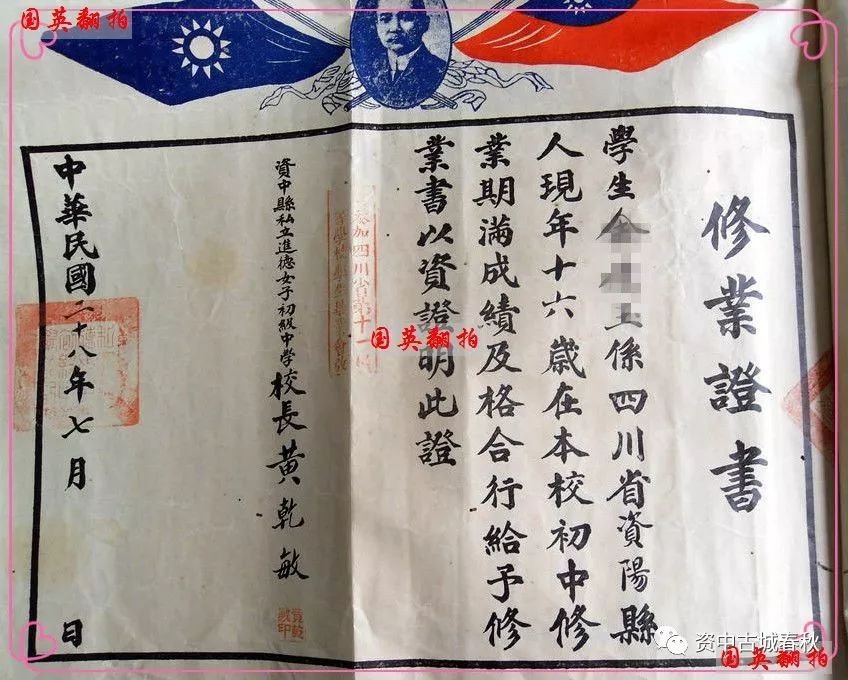 国英翻拍
修業證書
學生金 玉係四川省資陽縣
人現年十六歲在本校初中修
業期滿成績及格合行給予修
業書以資證明此證
加四川省第十
資中縣私立進德女子初級中學校長黃乾敏
黃乾敏印
中華民國二十八年七月 日
国英翻拍
资中古城春秋
国英翻拍